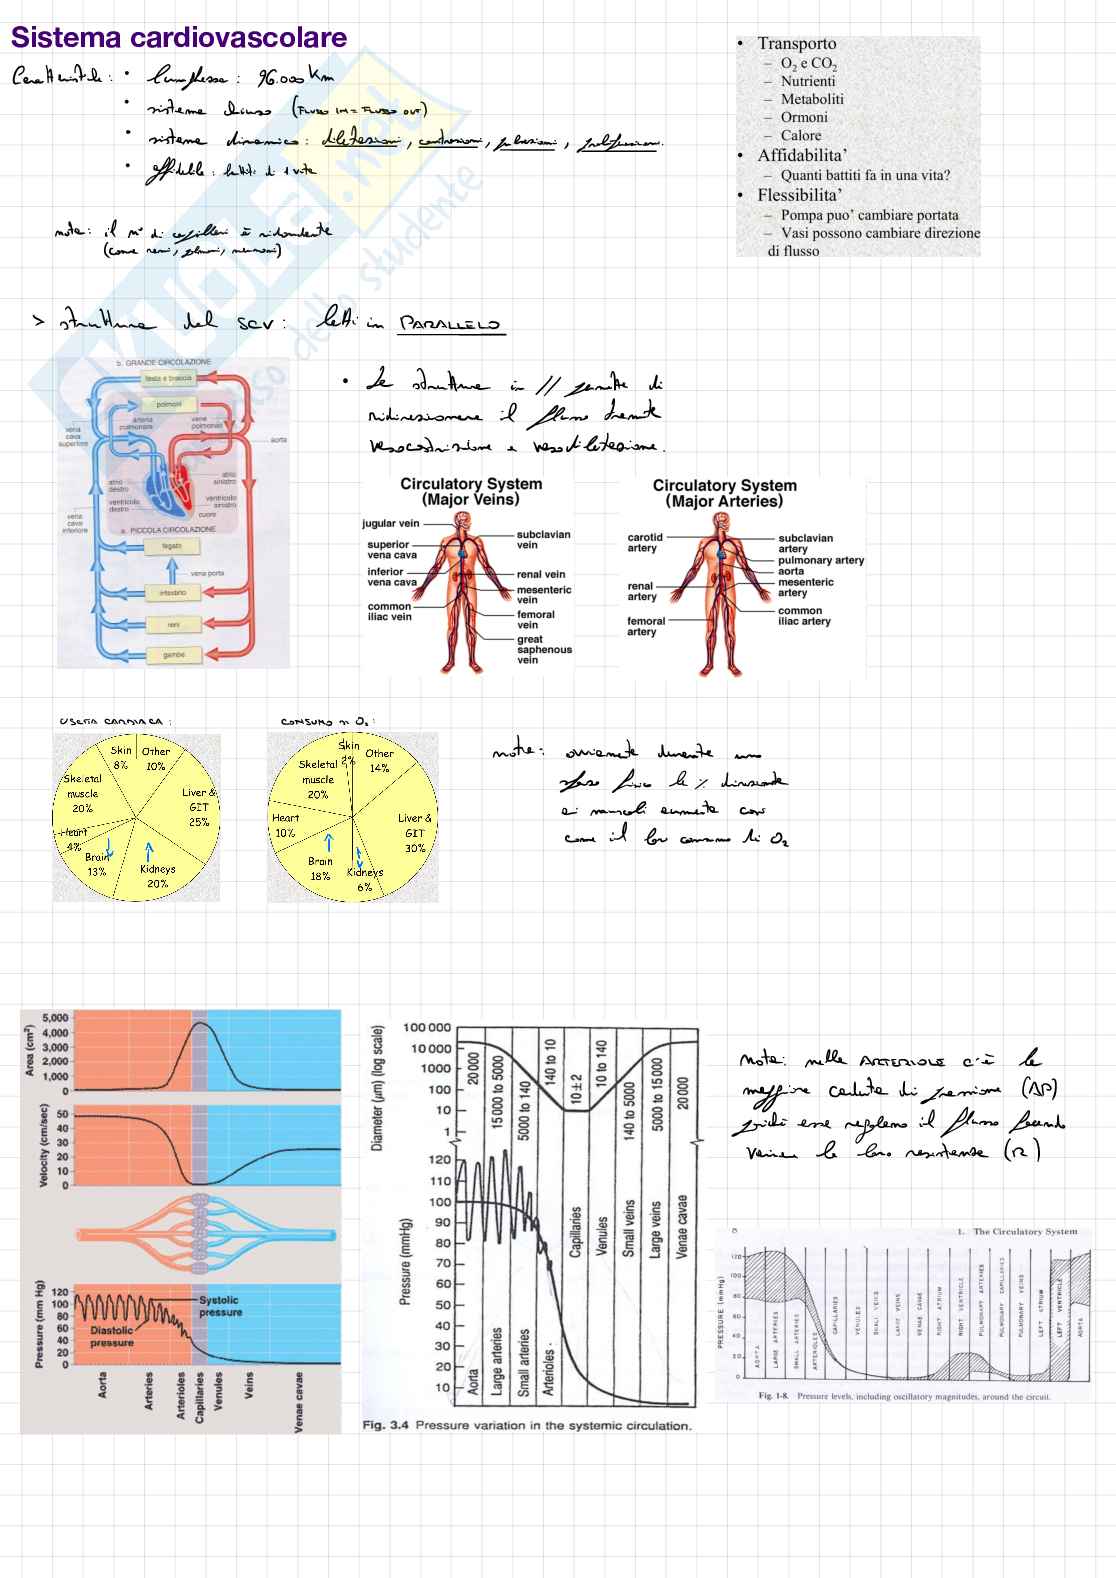 Sistema cardiovascolare
Caratteristiche: • lunghezza: 96.000 Km
• sistema chiuso (FLUSSO IN = FLUSSO OUT)
• sistema dinamico: dilatazioni, contrazioni, pulsazioni, proliferazioni.
• affidabile: battiti di 1 vita
nota: il n° di capillari è ridondante
(come reni, polmoni, neuroni)
• Transporto
– O2 e CO2
– Nutrienti
– Metaboliti
– Ormoni
– Calore
• Affidabilita'
– Quanti battiti fa in una vita?
• Flessibilita'
– Pompa puo' cambiare portata
– Vasi possono cambiare direzione
di flusso
> struttura del SCV: letti in PARALLELO
b. GRANDE CIRCOLAZIONE
testa e braccia
polmoni
arteria
polmonare
vene
polmonari
vena
cava
superiore
aorta
atrio
destro
atrio
sinistro
ventricolo
destro
ventricolo
sinistro
cuore
vena
cava
inferiore
a. PICCOLA CIRCOLAZIONE
fegato
vena porta
intestino
reni
gambe
• La struttura in // permette di
ridirezionare il flusso tramite
vasocostrizione e vasodilatazione.
Circulatory System
(Major Veins)
jugular vein
superior
vena cava
inferior
vena cava
common
iliac vein
subclavian
vein
renal vein
mesenteric
vein
femoral
vein
great
saphenous
vein
Circulatory System
(Major Arteries)
carotid
artery
renal
artery
femoral
artery
subclavian
artery
pulmonary artery
aorta
mesenteric
artery
common
iliac artery
USCITA CARDIACA:
Skin
8%
Other
10%
Skeletal
muscle
20%
Liver &
GIT
25%
Heart
4%
Brain
13%
Kidneys
20%
CONSUMO DI O2:
Skin
2%
Other
14%
Skeletal
muscle
20%
Heart
10%
Liver &
GIT
30%
Brain
18%
Kidneys
6%
nota: ovviamente durante uno
sforzo fisico la % direzionata
ai muscoli aumenta così
come il loro consumo di O2
Area (cm2)
5,000
4,000
3,000
2,000
1,000
0
Velocity (cm/sec)
50
40
30
20
10
0
Pressure (mm Hg)
120
100
80
60
40
20
0
Systolic
pressure
Diastolic
pressure
Aorta
Arteries
Arterioles
Capillaries
Venules
Veins
Venae cavae
Diameter (μm) (log scale)
100 000
10 000
1000
100
10
1
20 000
15 000 to 5000
5000 to 140
140 to 10
10 ± 2
10 to 140
140 to 5000
5000 to 15 000
20 000
Pressure (mmHg)
120
110
100
90
80
70
60
50
40
30
20
10
Aorta
Large arteries
Small arteries
Arterioles
Capillaries
Venules
Small veins
Large veins
Venae cavae
Fig. 3.4 Pressure variation in the systemic circulation.
nota: nelle ARTERIOLE c'è la
maggiore caduta di pressione (ΔP)
poiché esse regolano il flusso facendo
variare la loro resistenza (R)
1. The Circulatory System
PRESSURE (mmHg)
120
100
80
60
40
20
0
AORTA
LARGE ARTERIES
SMALL ARTERIES
ARTERIOLES
CAPILLARIES
VENULES
SMALL VEINS
LARGE VEINS
VENAE CAVAE
RIGHT ATRIUM
RIGHT VENTRICLE
PULMONARY ARTERIES
PULMONARY CAPILLARIES
PULMONARY VEINS
LEFT ATRIUM
LEFT VENTRICLE
AORTA
Fig. 1-8. Pressure levels, including oscillatory magnitudes, around the circuit.